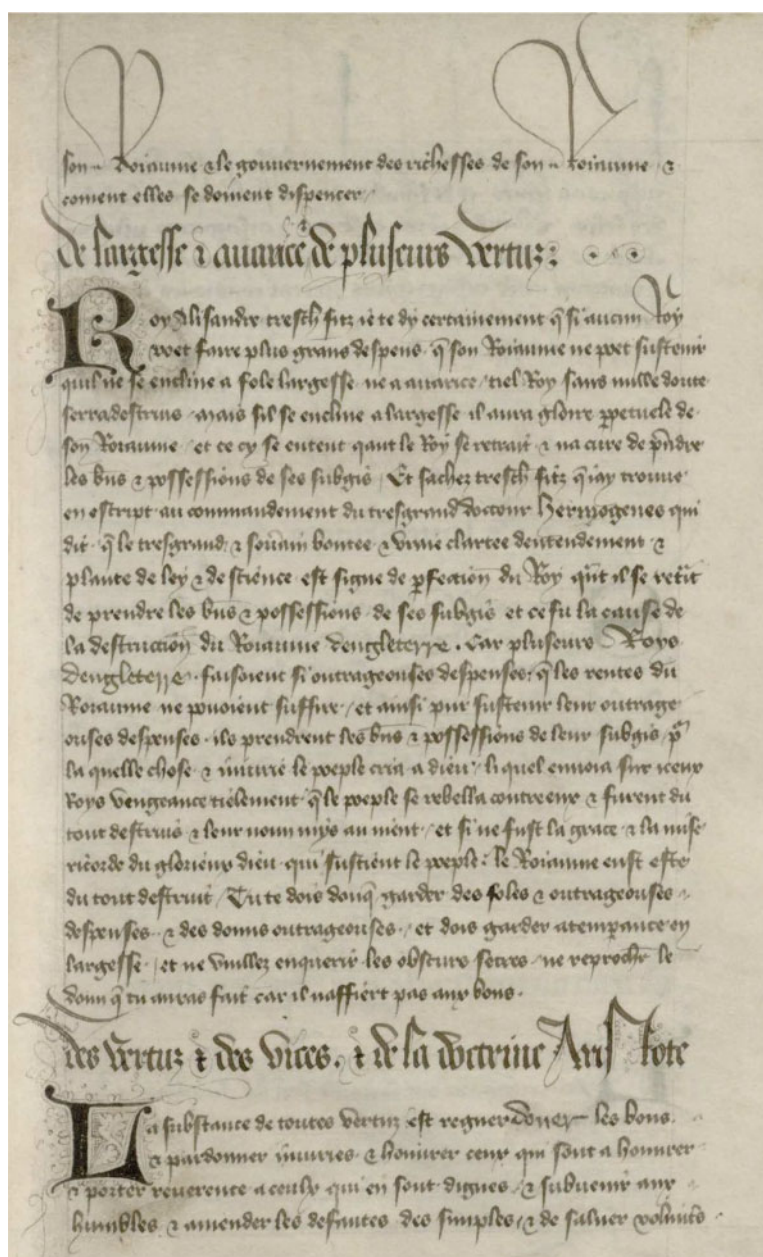 son Roiaume & le gouvernement des richesses de son Roiaume &
coment elles se doivent dispencer
De largesse & avarice & de pluseurs vertuz :
Roy Alisandre tresch fitz ie te dy certainement q̄ si aucun Roy
voet faire plus grans despens q̄ son Roiaume ne poet sustenir
quil ne se encline a fole largesse ne a avarice / tiel Roy sans nulle doute
serra destruis mais sil se encline a largesse il aura gloire ꝑpetuele de
son Roiaume / et ce cy se entent qant le Roy se retrait & na cure de p̄ndre
les bn̄s & possessions de ses subgis / Et sachez tresch fitz q̄ iay trouve
en escript au commandement du tresgrand doctour Hermogenes qui
dit q̄ le tresgrand & sov̄ain bontee & vraie clartee dentendement &
plante de ley & de science est signe de ꝑfection du Roy qn̄t il se ret̄it
de prendre les bn̄s & possessions de ses subgis et ce fu la cause de
la destruccion du Roiaume dengleterre . Car pluseurs Roys
dengleterre faisoient si outrageouses despenses q̄ les rentes du
Roiaume ne povoient suffire / et ainsi pur sustenir leur outrage
ouses despenses ils prendrent les bn̄s & possessions de leur subgis / pr
la quelle chose & iniurie le poeple cria a dieu / li quel envoia sur iceux
Roys vengeance tielement q̄ le poeple se rebella contre eux & furent du
tout destruis & leur noun mys au nient / et si ne fust la grace & la mise
ricorde du glorieux dieu qui sustient le poeple : le Roiaume eust este
du tout destruit / Tu te dois donq̄ garder des foles & outrageouses
despenses & des donns outrageouses / et dois garder atemꝑance en
largesse / et ne vuillez enquerir les obscurs secres ne reproch̄r le
donn q̄ tu auras fait car il naffiert pas aux bons .
Des vertuz & des vices . & de la doctrine Aristote
La substance de toutes vertuz est regner doner les bons
& pardonner iniuries & honurer ceux qui sont a honurer
& porter reverence a ceulx qui en sont dignes / & subvenir aux
humbles & amender les defautes des simples / & de saluer voluntᵗˢ